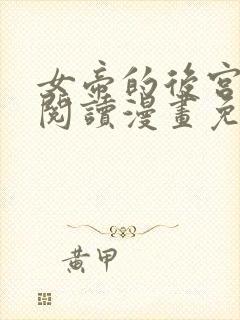 女帝的後宮
閱讀漫畫免
黃甲